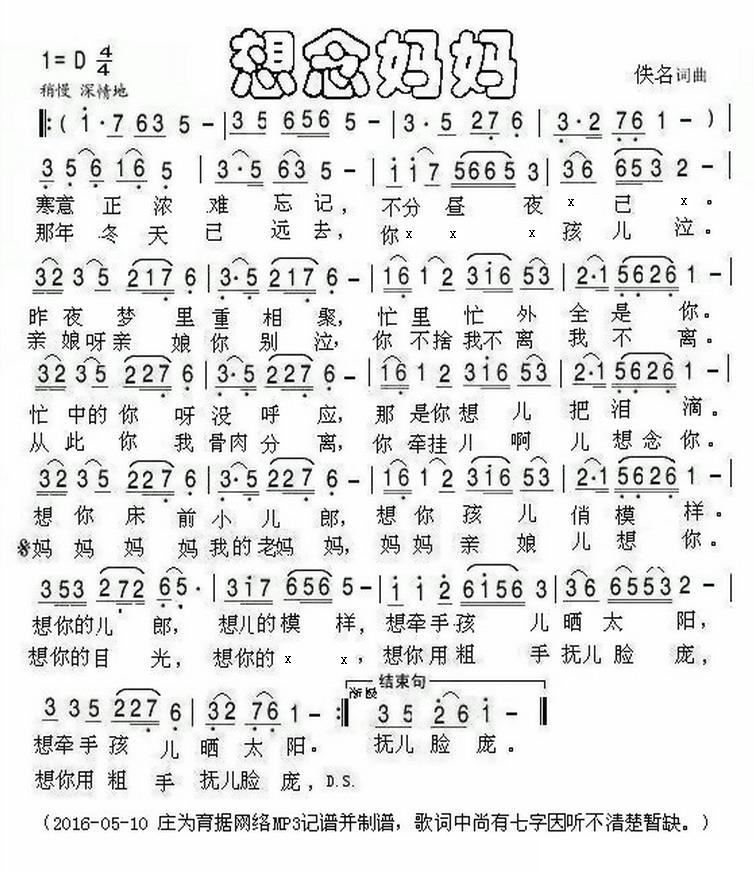 想念妈妈
1=D 4/4
稍慢 深情地
佚名词曲
‖:( i·7 63 5 - | 35 656 5 - | 3·5 27 6 - | 3·2 76 1 - ) |
3 5 6 16 5 | 3·5 63 5 - | i i i7 5665 3 | 36 653 2 - |
寒意正浓难忘记，不分昼夜x已x。
那年冬天已远去，你xxx孩儿泣。
32 35 217 6 | 3·5 217 6 - | 16 12 3i6 53 | 2·1 5626 1 - |
昨夜梦里重相聚，忙里忙外全是你。
亲娘呀亲娘你别泣，你不捨我不离我不离。
32 35 227 6 | 3·5 227 6 - | 16 12 3i6 53 | 2·1 5626 1 - |
忙中的你呀没呼应，那是你想儿把泪滴。
从此你我骨肉分离，你牵挂儿啊儿想念你。
32 35 227 6 | 3·5 227 6 - | 16 12 3i6 53 | 2·1 5626 1 - |
想你床前小儿郎，想你孩儿俏模样。
妈妈妈妈我的老妈妈，妈妈亲娘儿想你。
353 272 65· | 3i7 656 5 - | i i 2 6i56 3 | 36 6553 2 - |
想你的儿郎，想儿的模样，想牵手孩儿晒太阳，
想你的目光，想你的xx，想你用粗手抚儿脸庞，
渐慢 结束句
3 35 227 6 | 32 76 1 - :‖ 35 26 i - ‖
想牵手孩儿晒太阳。抚儿脸庞。
想你用粗手抚儿脸庞，D.S.
（2016-05-10 庄为育据网络MP3记谱并制谱，歌词中尚有七字因听不清楚暂缺。）